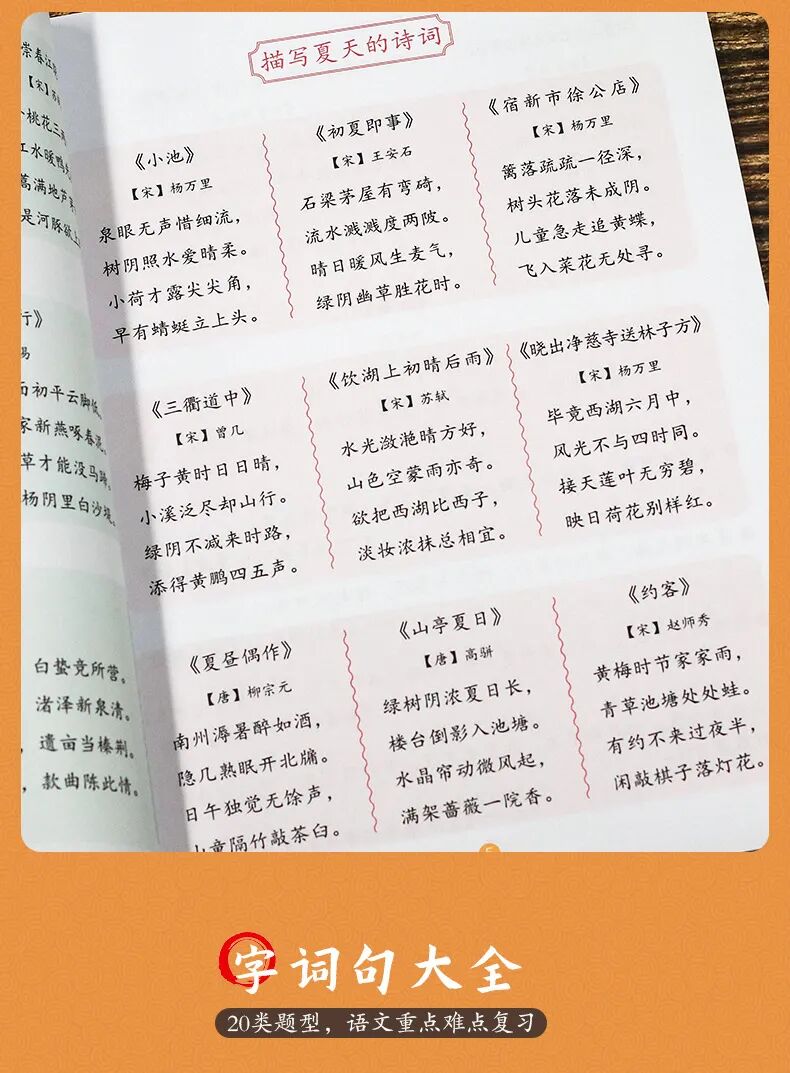 崇春江
【宋】苏
桃花三
江水暖鸭
蒌满地芦
是河豚欲上
行》
面初平云脚低
家新燕啄春泥
草才能没马蹄。
杨阴里白沙堤。
白蛰竞所营。
渚泽新泉清。
遗亩当榛荆。
款曲陈此情。
描写夏天的诗词
《小池》
【宋】杨万里
泉眼无声惜细流，
树阴照水爱晴柔。
小荷才露尖尖角，
早有蜻蜓立上头。
《初夏即事》
【宋】王安石
石梁茅屋有弯碕，
流水溅溅度两陂。
晴日暖风生麦气，
绿阴幽草胜花时。
《宿新市徐公店》
【宋】杨万里
篱落疏疏一径深，
树头花落未成阴。
儿童急走追黄蝶，
飞入菜花无处寻。
《三衢道中》
【宋】曾几
梅子黄时日日晴，
小溪泛尽却山行。
绿阴不减来时路，
添得黄鹏四五声。
《饮湖上初晴后雨》
【宋】苏轼
水光潋滟晴方好，
山色空蒙雨亦奇。
欲把西湖比西子，
淡妆浓抹总相宜。
《晓出净慈寺送林子方》
【宋】杨万里
毕竟西湖六月中，
风光不与四时同。
接天莲叶无穷碧，
映日荷花别样红。
《夏昼偶作》
【唐】柳宗元
南州溽暑醉如酒，
隐几熟眠开北牖。
日午独觉无馀声，
山童隔竹敲茶臼。
《山亭夏日》
【唐】高骈
绿树阴浓夏日长，
楼台倒影入池塘。
水晶帘动微风起，
满架蔷薇一院香。
《约客》
【宋】赵师秀
黄梅时节家家雨，
青草池塘处处蛙。
有约不来过夜半，
闲敲棋子落灯花。
字词句大全
20类题型，语文重点难点复习